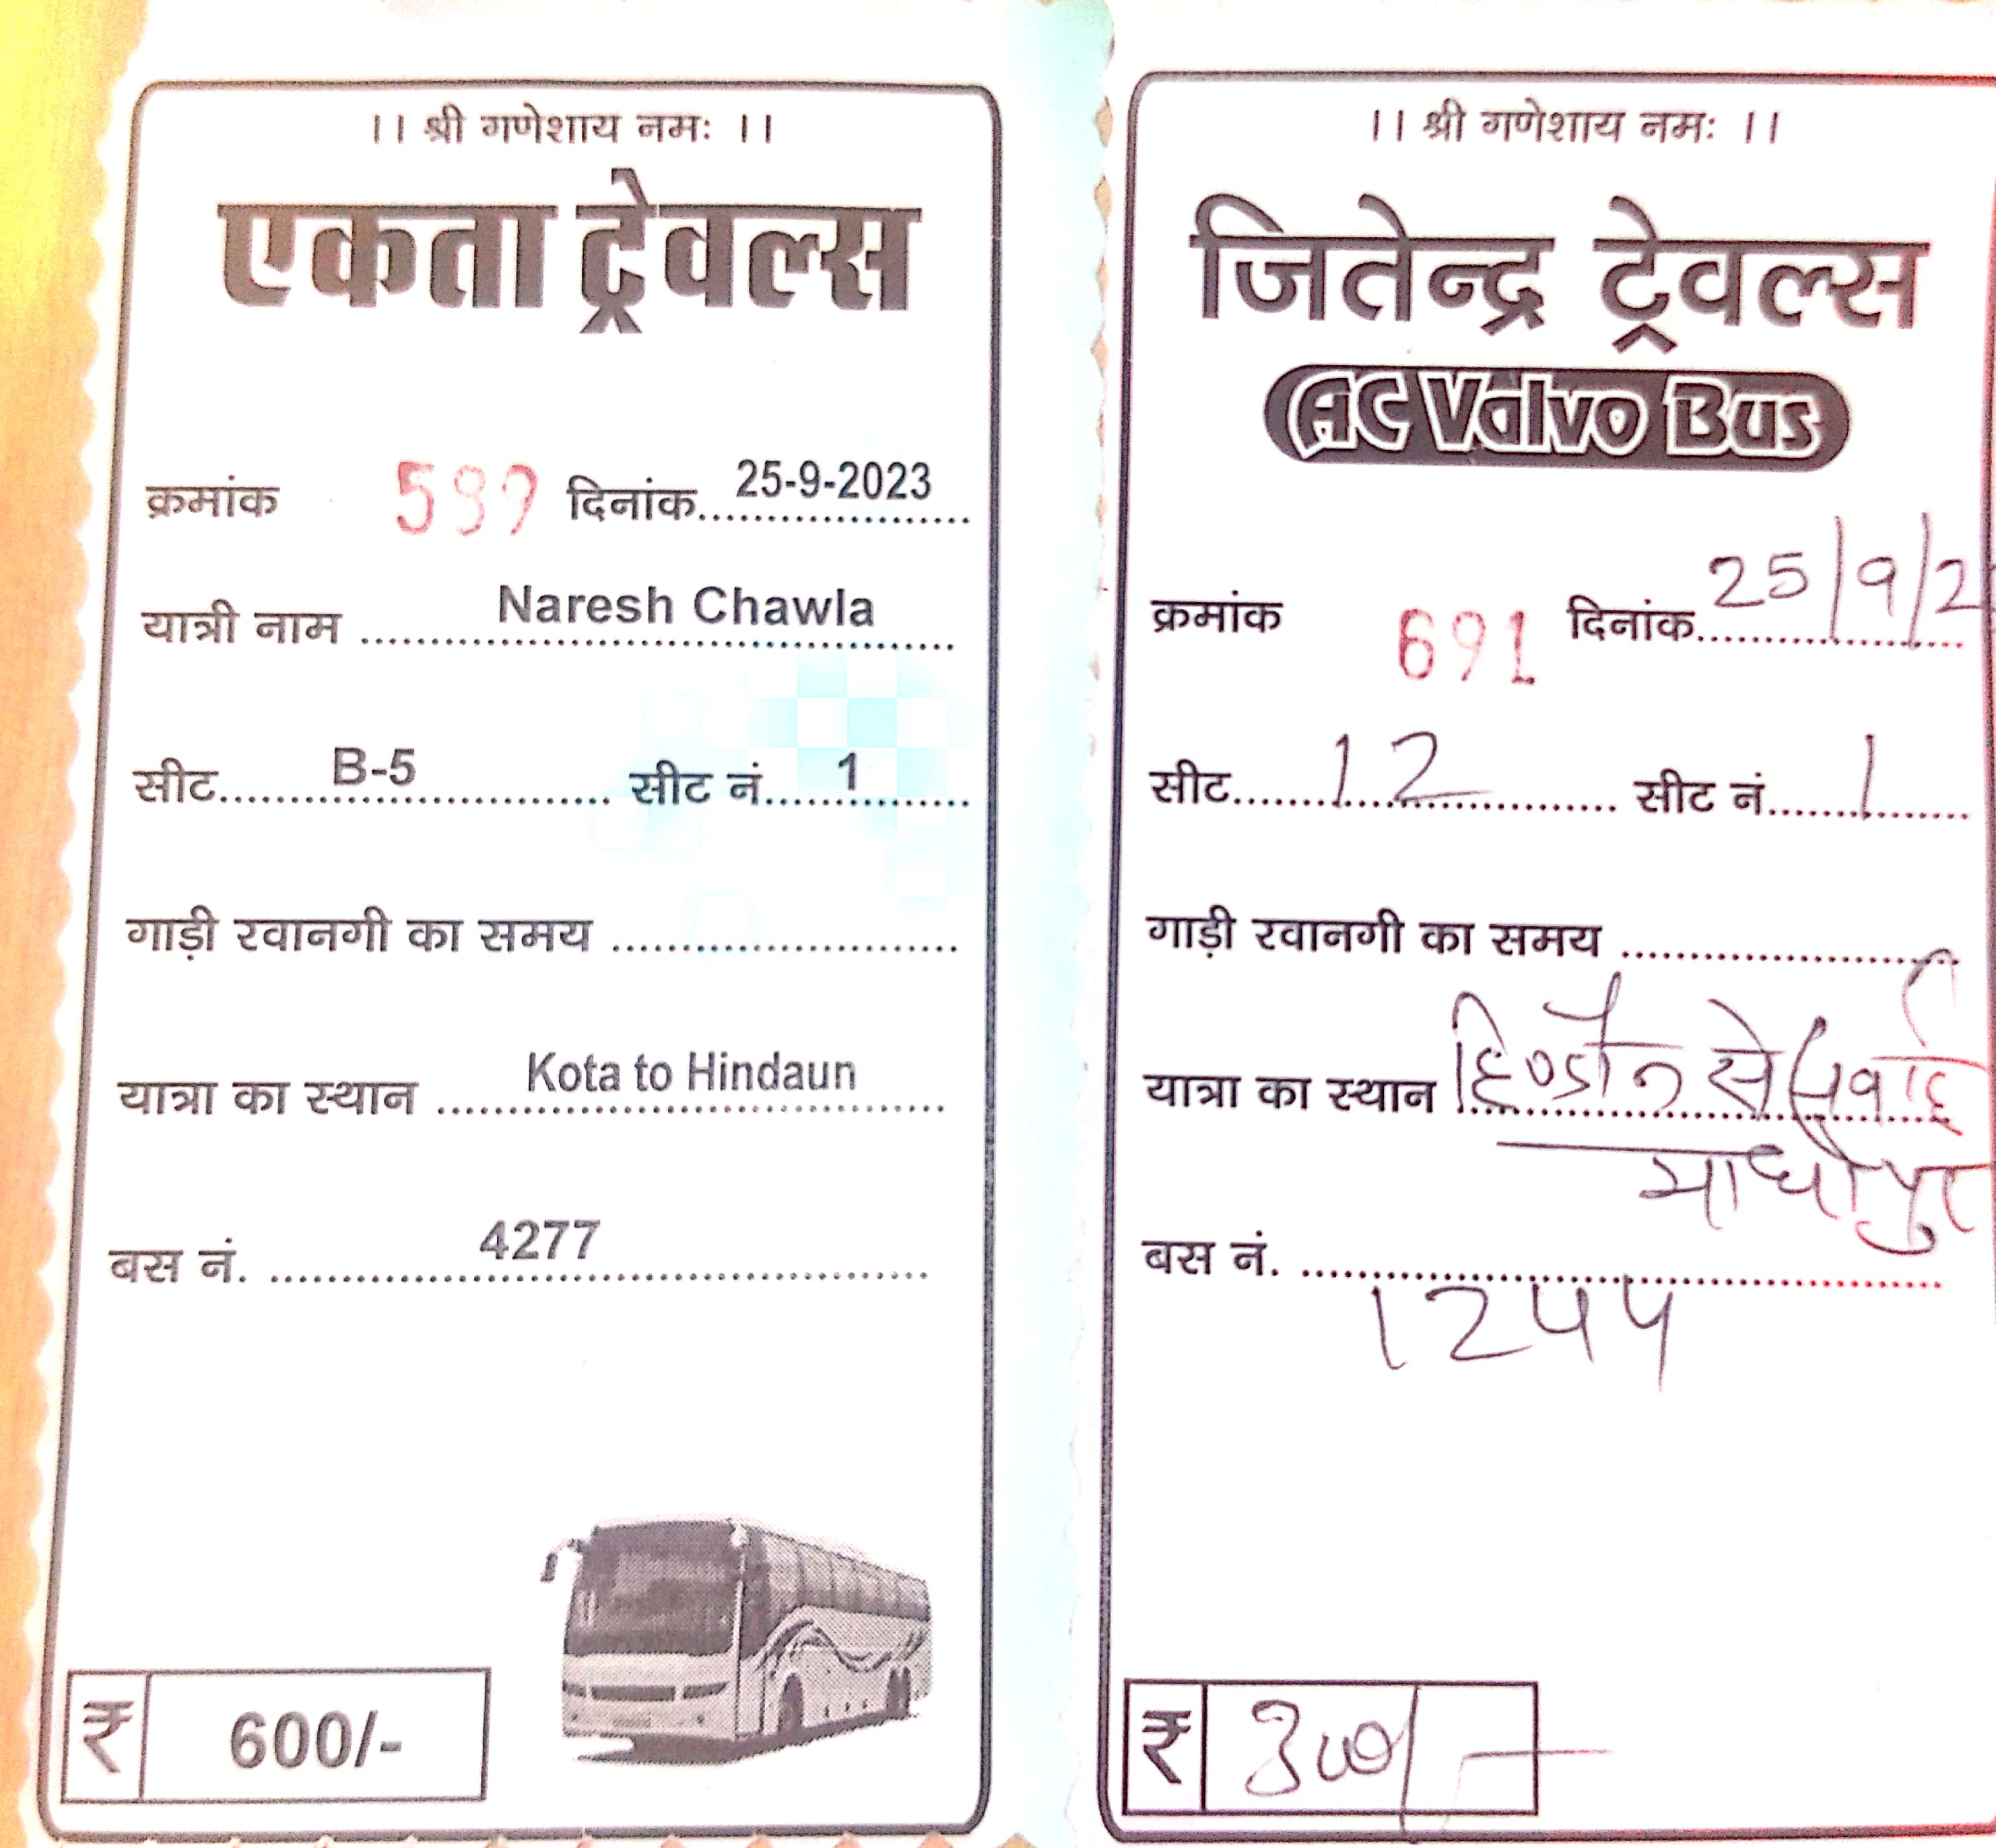 ।। श्री गणेशाय नमः ।।
एकता ट्रेवल्स
क्रमांक 599 दिनांक 25-9-2023
यात्री नाम Naresh Chawla
सीट B-5 सीट नं. 1
गाड़ी रवानगी का समय
यात्रा का स्थान Kota to Hindaun
बस नं. 4277
₹ 600/-
।। श्री गणेशाय नमः ।।
जितेन्द्र ट्रेवल्स
AC Valvo Bus
क्रमांक 691 दिनांक 25/9/2
सीट 12 सीट नं. 1
गाड़ी रवानगी का समय
यात्रा का स्थान हिण्डौन से सवाई
माधोपुर
बस नं.
1244
₹ 300/-